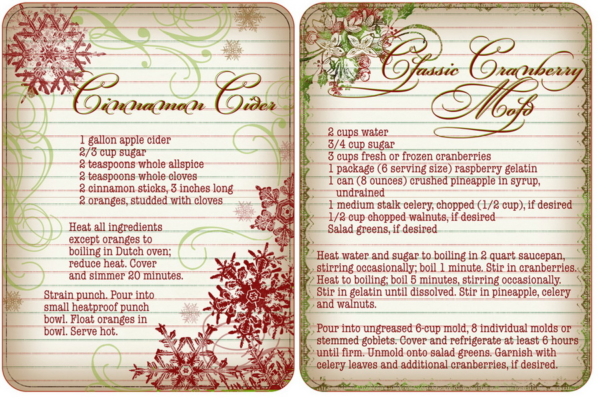 Cinnamon Cider
1 gallon apple cider
2/3 cup sugar
2 teaspoons whole allspice
2 teaspoons whole cloves
2 cinnamon sticks, 3 inches long
2 oranges, studded with cloves
Heat all ingredients
except oranges to
boiling in Dutch oven;
reduce heat. Cover
and simmer 20 minutes.
Strain punch. Pour into
small heatproof punch
bowl. Float oranges in
bowl. Serve hot.
Classic Cranberry
Mold
2 cups water
3/4 cup sugar
3 cups fresh or frozen cranberries
1 package (6 serving size) raspberry gelatin
1 can (8 ounces) crushed pineapple in syrup,
undrained
1 medium stalk celery, chopped (1/2 cup), if desired
1/2 cup chopped walnuts, if desired
Salad greens, if desired
Heat water and sugar to boiling in 2 quart saucepan,
stirring occasionally; boil 1 minute. Stir in cranberries.
Heat to boiling; boil 5 minutes, stirring occasionally.
Stir in gelatin until dissolved. Stir in pineapple, celery
and walnuts.
Pour into ungreased 6-cup mold, 8 individual molds or
stemmed goblets. Cover and refrigerate at least 6 hours
until firm. Unmold onto salad greens. Garnish with
celery leaves and additional cranberries, if desired.